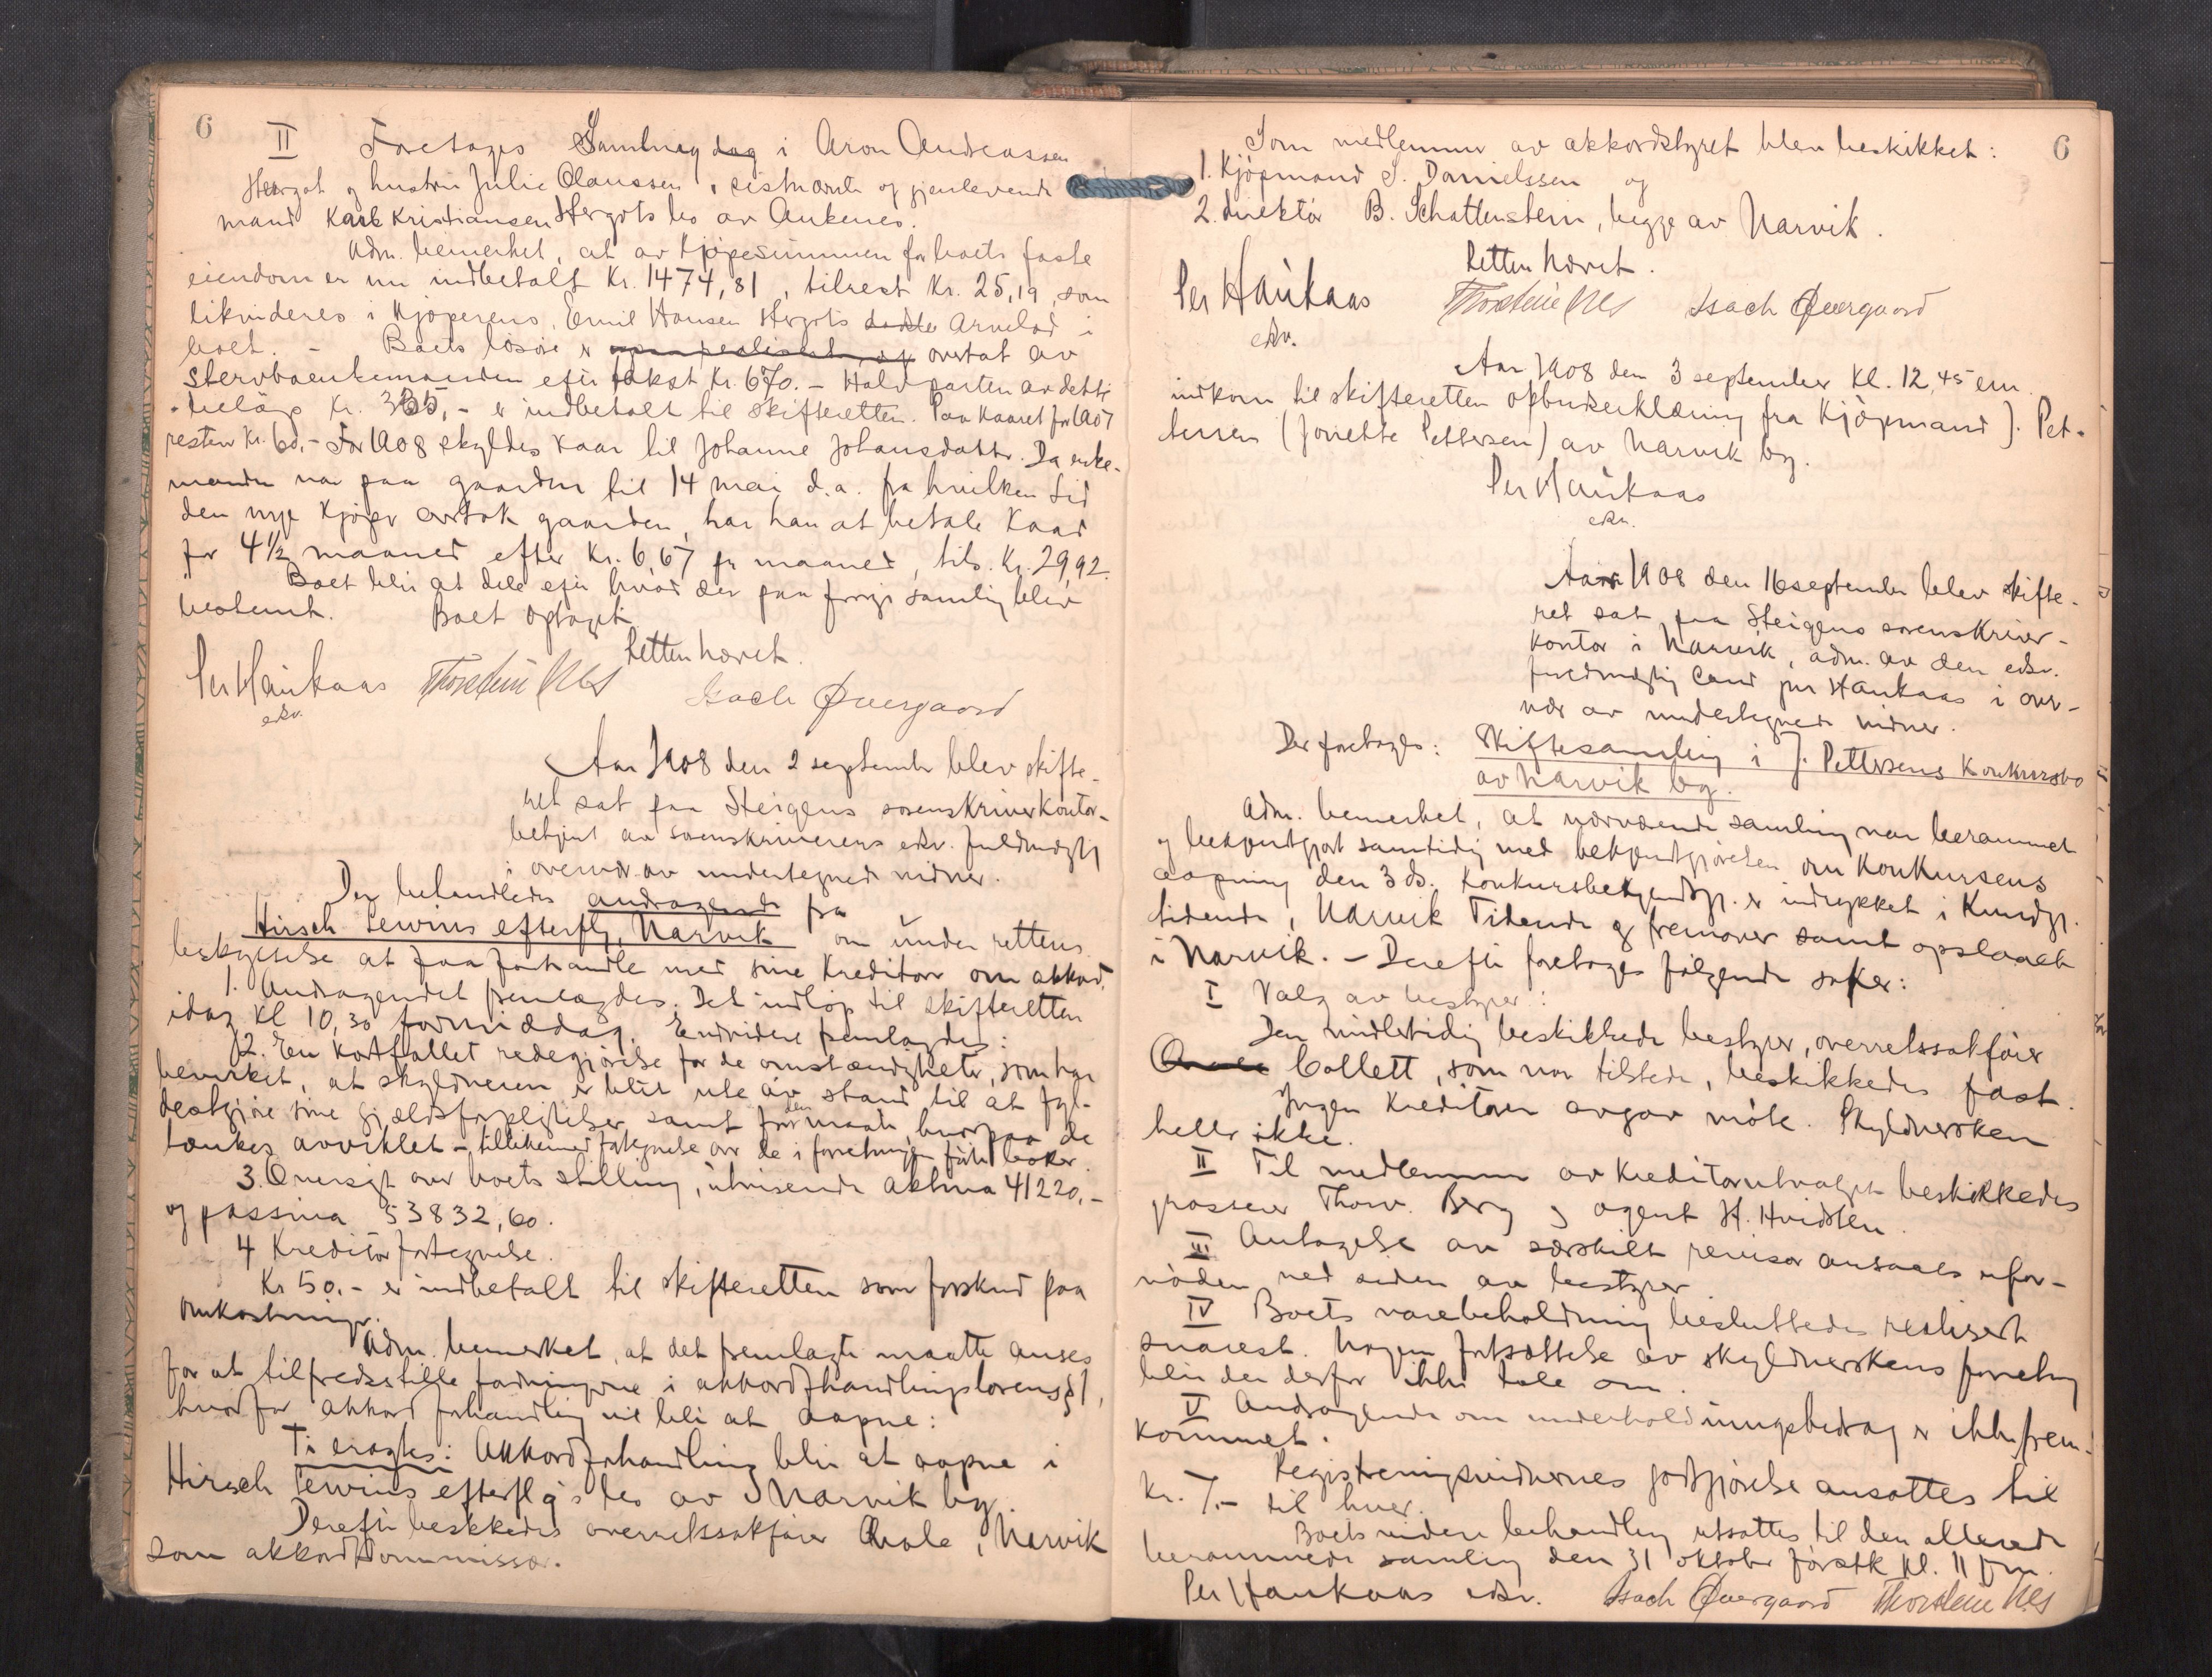 6
II Foretages Samling dag i Aron Andreassen
Hergot og hustru Julie Olaussen, sistnævnte og gjenlevende
mand Karl Kristiansen Hergots bo av Ankenes.
Adm. bemerket, at av kjøpesummen for boets faste
eiendom er nu indbetalt Kr. 1474,81, tilrest Kr. 25,19, som
likvideres i kjøperens, Emil Hansen Hergots arvelod i
boet. - Boets løsøre er overtat av
stervboenkemanden efter takst Kr. 670.- Halvparten av dette
beløp Kr. 335,- er indbetalt til skifteretten. Paa kaaret for 1907
rester Kr. 60.- For 1908 skyldes kaar til Johanne Johansdatter. Da enke-
manden var paa gaarden til 14 mai d.a. fra hvilken tid
den nye kjøper overtok gaarden, har han at betale kaar
for 4½ maaned efter Kr. 6,67 pr maaned, tils. Kr. 29,92.
Boet blir at dele efter hvad der paa forrige samling blev
bestemt. Boet optaget
Retten hævet.
Per Haukaas Thorstein Nes Isach Øvergaard
edsv.
Aar 1908 den 2 september blev skifte-
ret sat paa Steigens sorenskriverkontor
betjent av sorenskriverens edsv. fuldmægtig
i overvær av undertegnede vidner.
Der behandledes andragende fra
Hirsch Lewins efterflg, Narvik om under rettens
beskyttelse at faa forhandle med sine kreditorer om akkord.
1. Andragendet fremlagdes. Det indløp til skifteretten
idag Kl 10,30 formiddag. Endvidere fremlagdes:
2. En kortfattet redegjørelse for de omstændigheter, som har
bevirket, at skyldneren er blit ute av stand til at fyl-
destgjøre sine gjældsforpligtelser, samt for den maate, hvorpaa de
tænkes avviklet - tillikemed fortegnelse over de i forretningen førte bøker.
3. Oversigt over boets stilling, utvisende aktiva 41220,-
og passiva 53832,60.
4 Kreditorfortegnelse.
Kr 50.- er indbetalt til skifteretten som forskud paa
omkostninger.
Adm. bemerket, at det fremlagte maatte anses
for at tilfredsstille fordringerne i akkordforhandlingslovens §1,
hvorfor akkordforhandling vil bli at aapne:
Ti eragtes: Akkordforhandling blir at aapne i
Hirsch Lewins efterflg's bo av Narvik by.
Derefter beskikkedes overretssakfører Qvale, Narvik
som akkordkommissær.
6
Som medlemmer av akkordstyret blev beskikket:
1. Kjøpmand S. Danielssen og
2. direktør B. Schattenstein, begge av Narvik.
Retten hævet.
Per Haukaas Thorstein Nes Isach Øvergaard
edsv.
Aar 1908 den 3 september Kl. 12,45 em
indkom til skifteretten opbudserklæring fra Kjøpmand J. Pet-
tersen (Jonette Pettersen) av Narvik by.
Per Haukaas
edsv.
Aar 1908 den 16 september blev skifte-
ret sat paa Steigens sorenskriver-
kontor i Narvik, adm. av den edsv.
fuldmægtig cand jur Haukaas i over-
vær av undertegnede vidner.
Der foretages: Skiftesamling i J. Pettersens konkursbo
av Narvik by.
Adm. bemerket, at nærværende samling var berammet
og bekjendtgjort samtidig med bekjendtgjørelsen om konkursens
aapning den 3 ds. Konkursbekjendtgj. er indrykket i Kundgj.
tidende, Narvik Tidende og Fremover samt opslaaet
i Narvik. - Derefter foretages følgende saker:
I Valg av bestyrer:
Den midlertidig beskikkede bestyrer, overretssakfører
Collett, som var tilstede, beskikkedes fast.
Ingen kreditorer avgav møte. Skyldnersken
heller ikke.
II Til medlemmer av kreditorutvalget beskikkedes
grosserer Thorv. Berg og agent H. Hvidsten.
III Antagelse av særskilt revisor ansaaes ufor-
nøden ved siden av bestyrer
IV Boets varebeholdning besluttedes realisert
snarest. Nogen fortsættelse av skyldnerskens forretning
blir der derfor ikke tale om.
V Andragende om underholdningsbidrag er ikke frem-
kommet.
Registreringsvidnernes godtgjørelse ansattes til
Kr. 7.- til hver.
Boets videre behandling utsattes til den allerede
berammede samling den 31 oktober førstk Kl. 11 fm.
Per Haukaas edsv. Isach Øvergaard Thorstein Nes